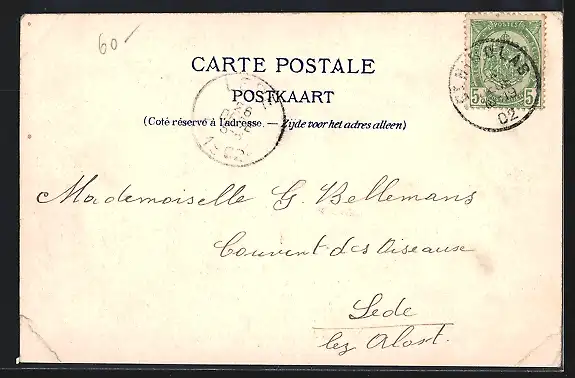 60-
CARTE POSTALE
POSTKAART
(Coté réservé à l'adresse. — Zijde voor het adres alleen)
POSTES
5 5
02
LEDE
26
1902
Mademoiselle G. Bellemans
Couvent des Oiseaux
Lede
lez Alost.